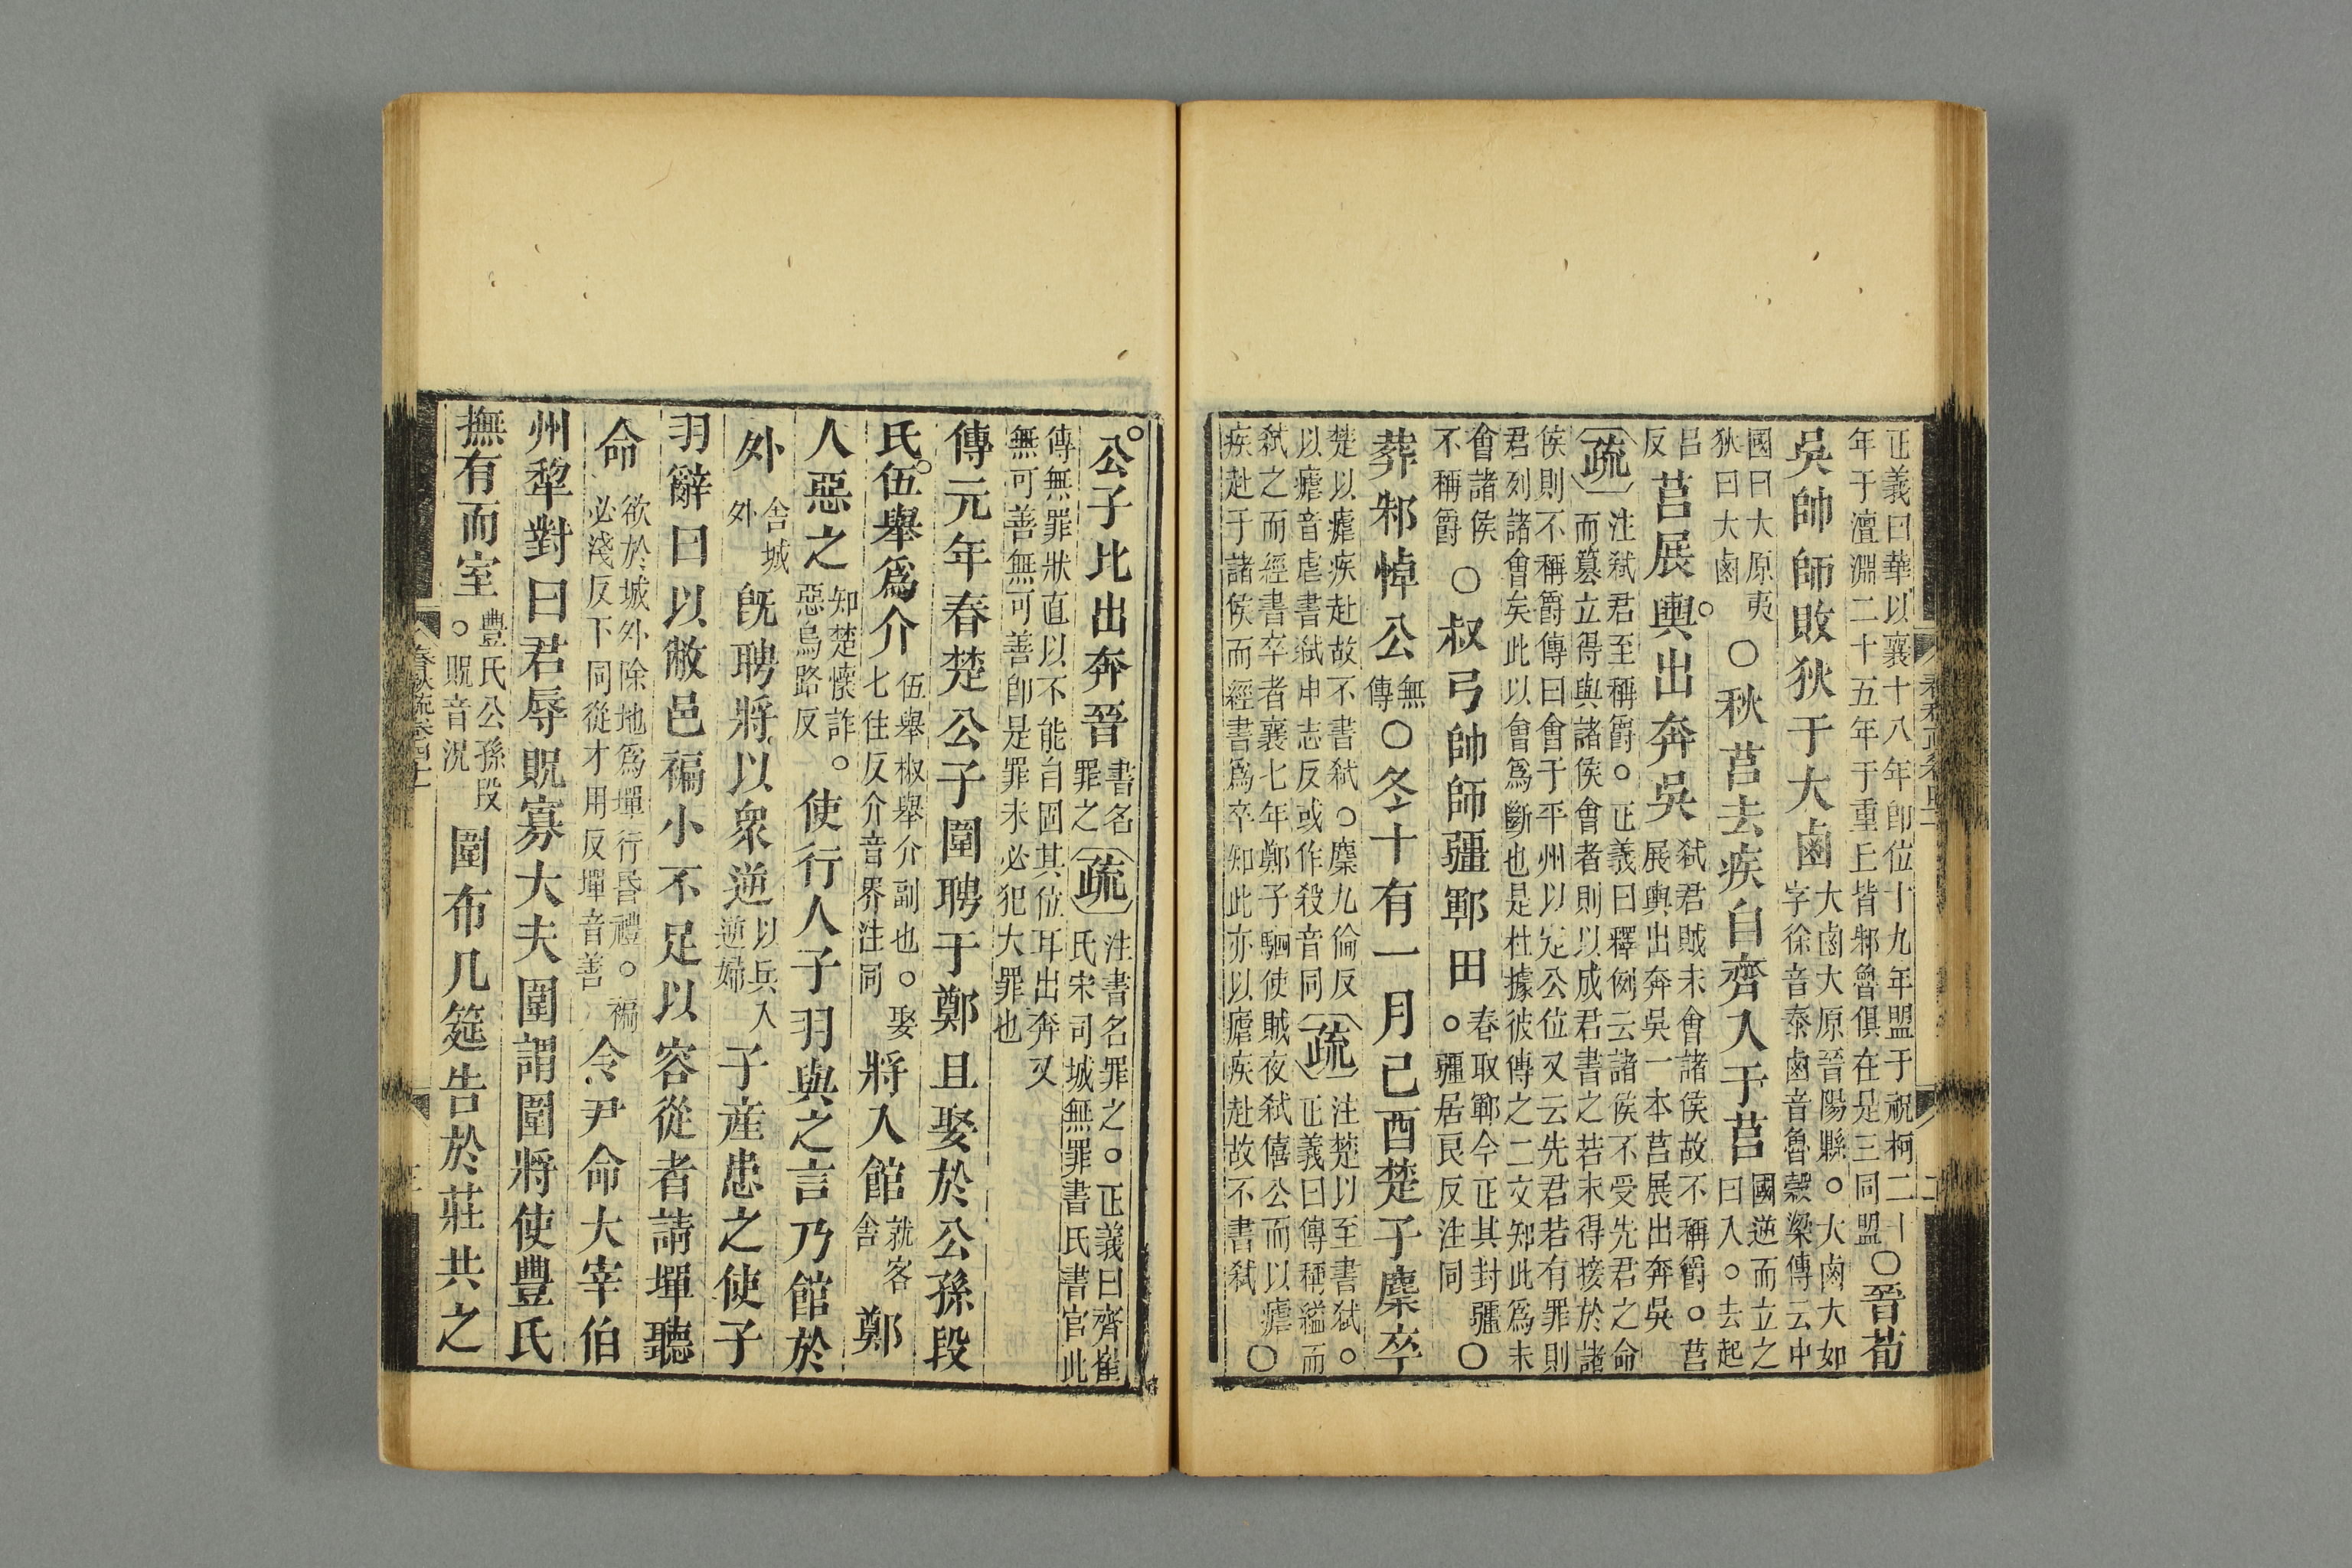 正義曰華以襄十八年卽位十九年盟于祝柯二十
年于澶淵二十五年于重丘皆邾魯俱在是三同盟〇晉荀
吳帥師敗狄于大鹵大鹵大原晉陽縣○大鹵大如
字徐音泰鹵音魯穀梁傳云中
國曰大原夷
狄曰大鹵〇秋莒去疾自齊入于莒國逆而立之
曰入○去起
呂
反莒展輿出奔吳弑君賊未會諸侯故不稱爵○莒
展輿出奔吳一本莒展出奔吳
疏注弑君至稱爵○正義曰釋例云諸侯不受先君之命
而篡立得與諸侯會者則以成君書之若未得接於諸
侯則不稱爵傳曰會于平州以定公位又云先君若有罪則
君列諸會矣此以會爲斷也是杜據彼傳之二文知此爲未
會諸侯
不稱爵〇叔弓帥師疆鄆田春取鄆今正其封疆
○疆居良反注同〇
葬邾悼公無
傳〇冬十有一月己酉楚子麇卒
楚以瘧疾赴故不書弑○麇九倫反
以瘧音虐書弑申志反或作殺音同疏注楚以至書弑○
正義曰傳稱縊而
弑之而經書卒者襄七年鄭子駟使賊夜弑僖公而以瘧
疾赴于諸侯而經書爲卒知此亦以瘧疾赴故不書弑〇
公子比出奔晉書名
罪之疏注書名罪之○正義曰齊崔
氏宋司城無罪書氏書官此
傳無罪狀直以不能自固其位耳出奔又
無可善無可善卽是罪未必犯大罪也
傳元年春楚公子圍聘于鄭且娶於公孫段
氏伍舉爲介伍舉椒舉介副也○娶
七住反介音界注同將入館就客
舍鄭
人惡之知楚懷詐○
惡烏路反使行人子羽與之言乃館於
外舍城
外既聘將以衆逆以兵入
逆婦子產患之使子
羽辭曰以敝邑褊小不足以容從者請墠聽
命欲於城外除地爲墠行昏禮○褊
必淺反下同從才用反墠音善令尹命大宰伯
州犁對曰君辱貺寡大夫圍謂圍將使豐氏
撫有而室豐氏公孫段
○貺音況圍布几筵告於莊共之